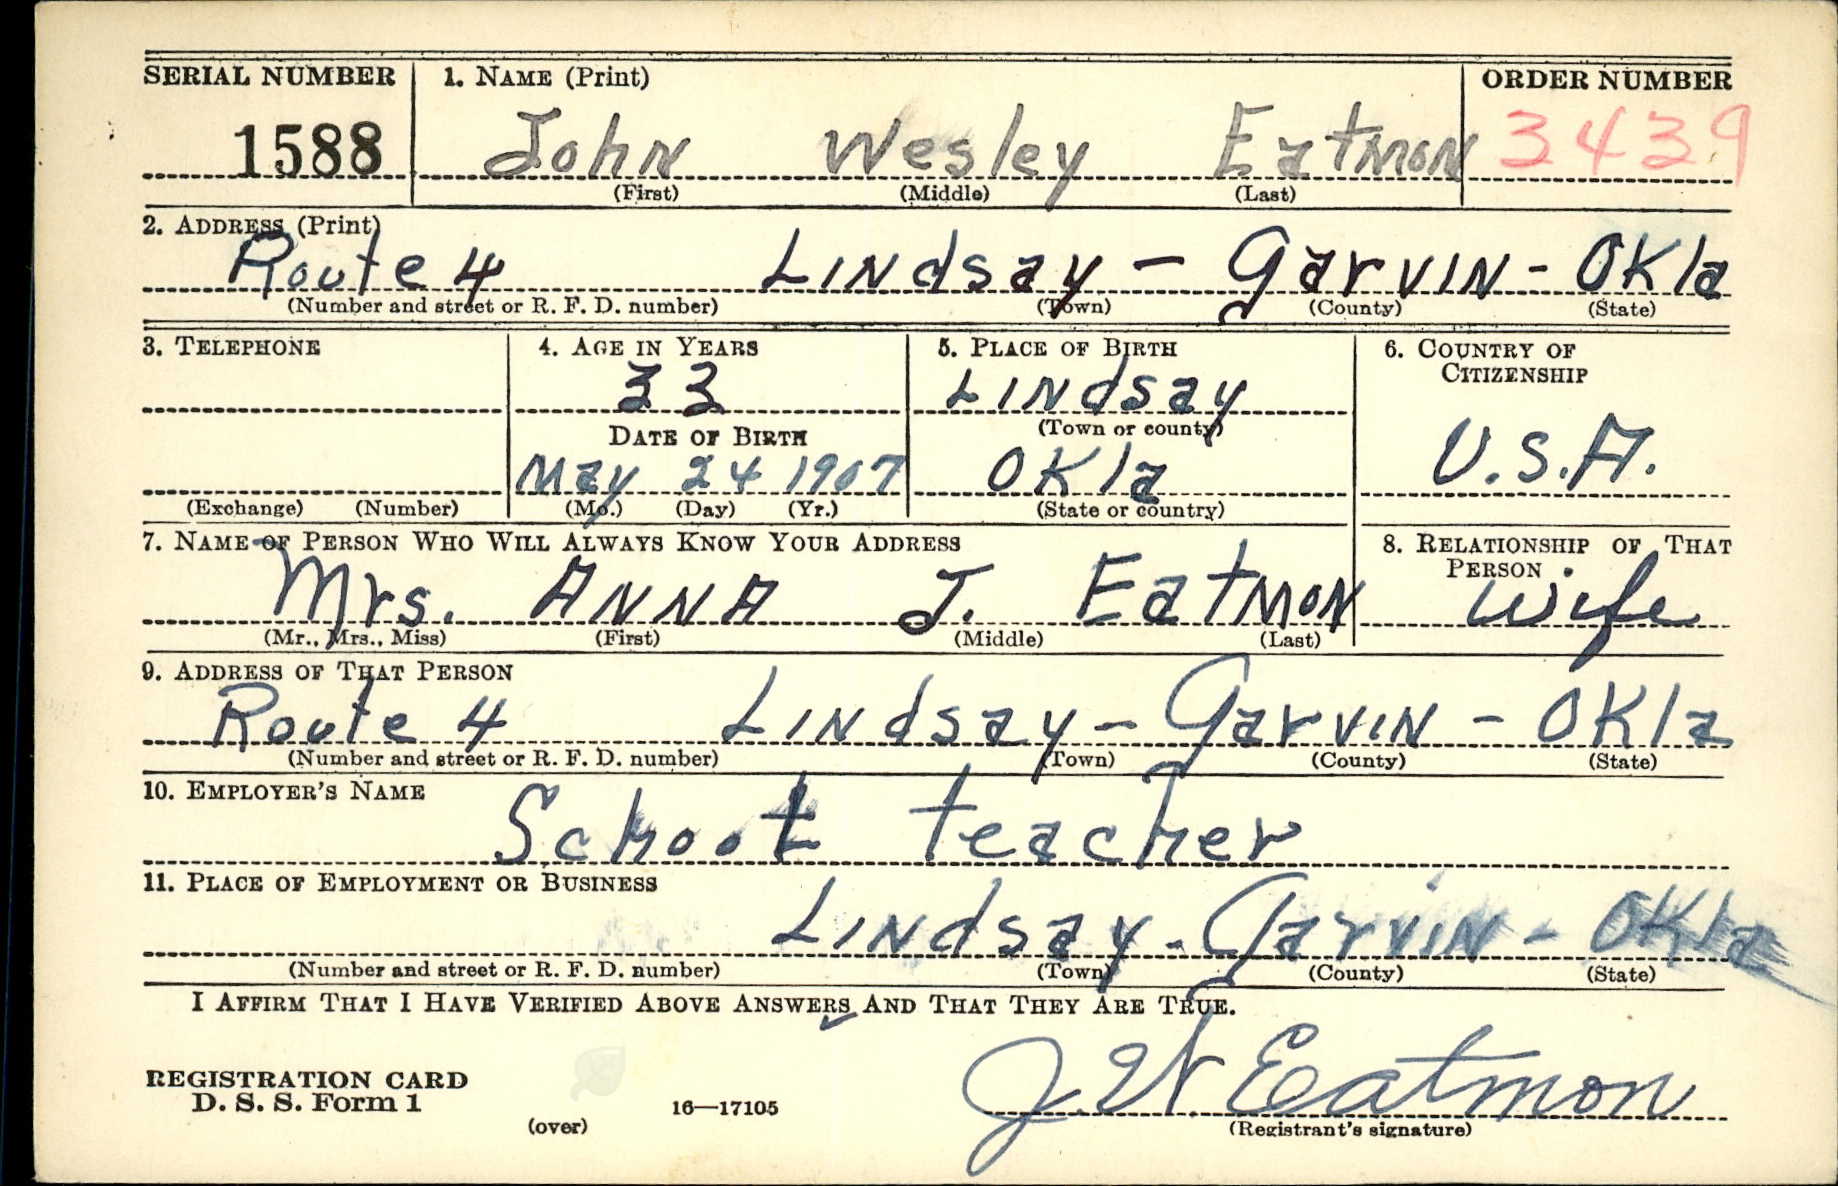 SERIAL NUMBER 1. NAME (Print) ORDER NUMBER
1588 John Wesley Eatmon 3439
(First) (Middle) (Last)
2. ADDRESS (Print)
Route 4 Lindsay - Garvin - Okla
(Number and street or R. F. D. number) (Town) (County) (State)
3. TELEPHONE 4. AGE IN YEARS 5. PLACE OF BIRTH 6. COUNTRY OF CITIZENSHIP
33 Lindsay
DATE OF BIRTH (Town or county)
May 24 1907 Okla U.S.A.
(Exchange) (Number) (Mo.) (Day) (Yr.) (State or country)
7. NAME OF PERSON WHO WILL ALWAYS KNOW YOUR ADDRESS 8. RELATIONSHIP OF THAT PERSON
Mrs. ANNA J. Eatmon wife
(Mr., Mrs., Miss) (First) (Middle) (Last)
9. ADDRESS OF THAT PERSON
Route 4 Lindsay - Garvin - Okla
(Number and street or R. F. D. number) (Town) (County) (State)
10. EMPLOYER'S NAME
School teacher
11. PLACE OF EMPLOYMENT OR BUSINESS
Lindsay - Garvin - Okla
(Number and street or R. F. D. number) (Town) (County) (State)
I AFFIRM THAT I HAVE VERIFIED ABOVE ANSWERS AND THAT THEY ARE TRUE.
REGISTRATION CARD
D. S. S. Form 1 16—17105 J. W. Eatmon
(over) (Registrant's signature)